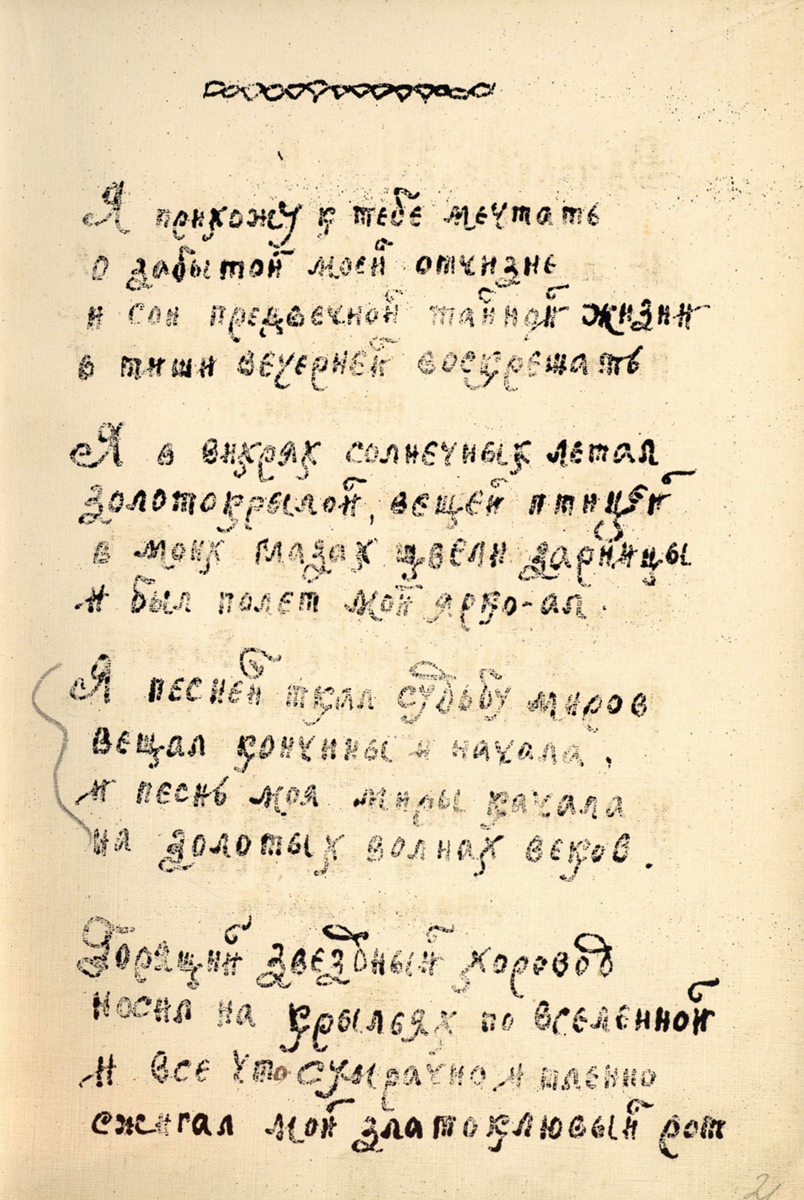 Я прихожу к тебе мечтать
о забытой моей отчизне
и сон предвечной тайной жизни
в тиши вечерней воскрешать
Я в вихрях солнечных летал
золотокрылой, вещей птицей
в моих глазах цвели зарницы
и был полет мой ярко-ал.
Я песней ткал судьбу миров
вещал кончины и начала,
и песнь моя миры качала
на золотых волнах веков.
Горящий звездный хоровод
носил на крыльях по вселенной
и все что сумрачно и тленно
сжигал мой златоклювый рот
2